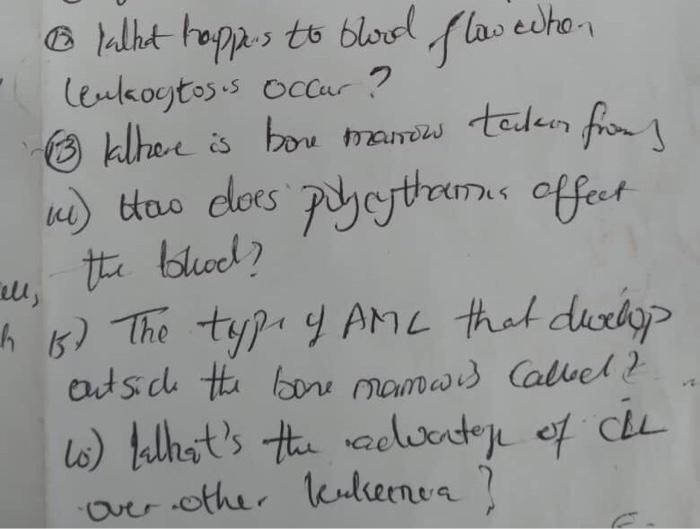 (12) What happens to blood flow when
leukocytosis occur?
(13) Where is bone marrow taken from
How does polycythamis affect
the blood?
15) The type of AML that develop
outside the bone marrow is called?
What's the advantage of CLL
over other leukemea?